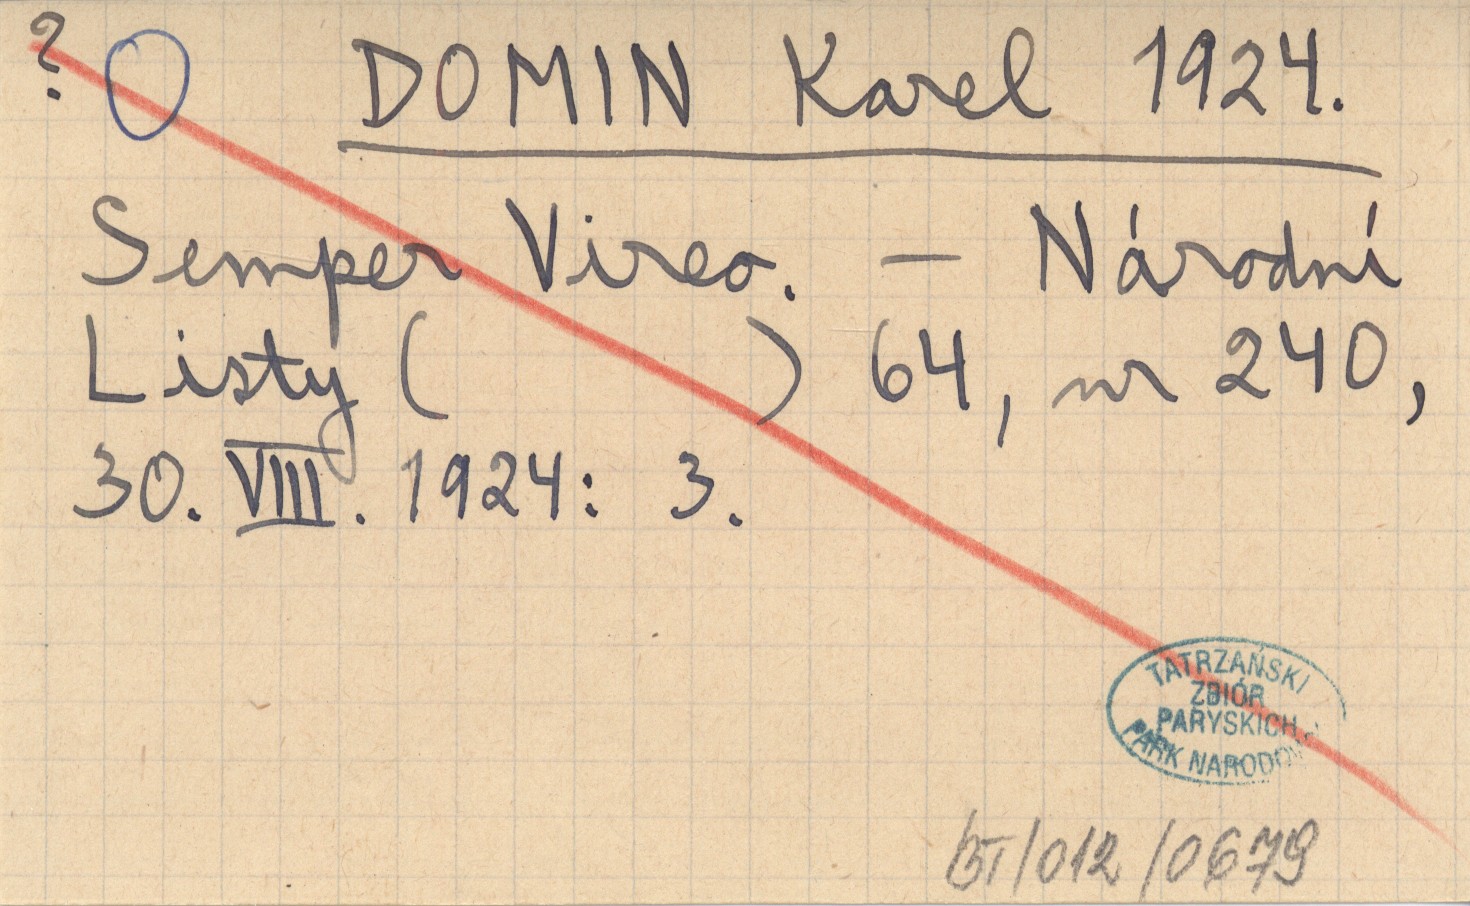 ? DOMIN Karel 1924.
Semper Vireo. — Národní
Listy ( ) 64, nr 240,
30. VIII. 1924: 3.
TATRZAŃSKI
ZBIÓR
PARYSKICH
PARK NARODOW
BT/012/0679